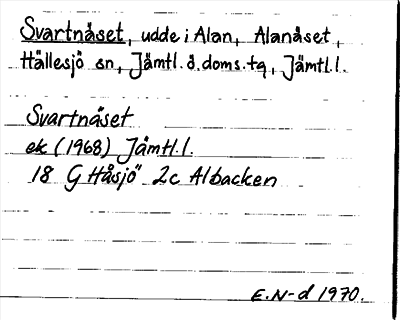 Svartnäset, udde i Alan, Alanäset,
Hällesjö sn, Jämtl. ö. doms. tg, Jämtl. l.
Svartnäset
ek (1968) Jämtl. l.
18 G Håsjö 2c Albacken
E. N-d 1970.